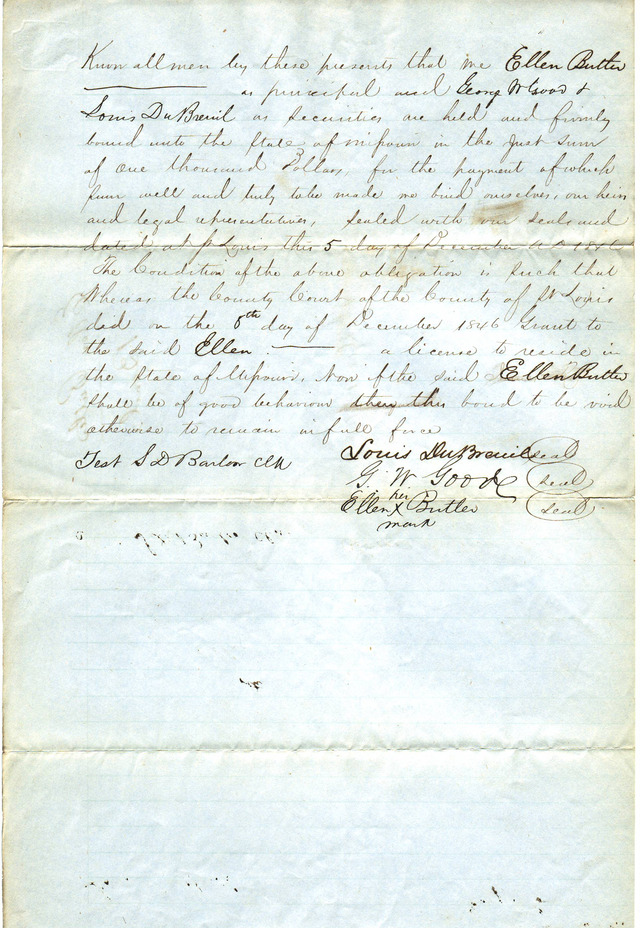 Know all men by these presents that we Ellen Butler
as principal and George W Good &
Louis DuBreuil as securities are held and firmly
bound unto the State of Missouri in the Just Sum
of One thousand Dollars, for the payment of which
Sum well and truly to be made we bind ourselves, our heirs
and legal representatives, Sealed with our seals and
dated at St Louis this 5 day of December A D 1846
The Condition of the above obligation is Such that
Whereas the County Court of the County of St Louis
did on the day of December 1846 Grant to
the said Ellen a license to reside in
the State of Missouri, Now if the said Ellen Butler
shall be of good behaviour then this bond to be void
otherwise to remain in full force
Test S D Barlow Clk Louis DuBreuil seal
G. W Good seal
Ellen her X mark Butler seal